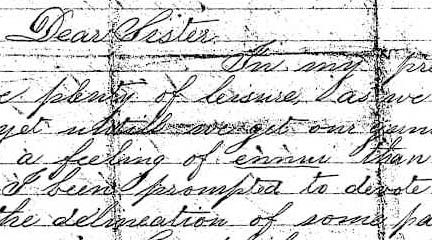 Dear Sister.
In my pre
plenty of leisure, as we
yet until we get our guns
a feeling of ennui than
I been prompted to devote
the delineation of some pa